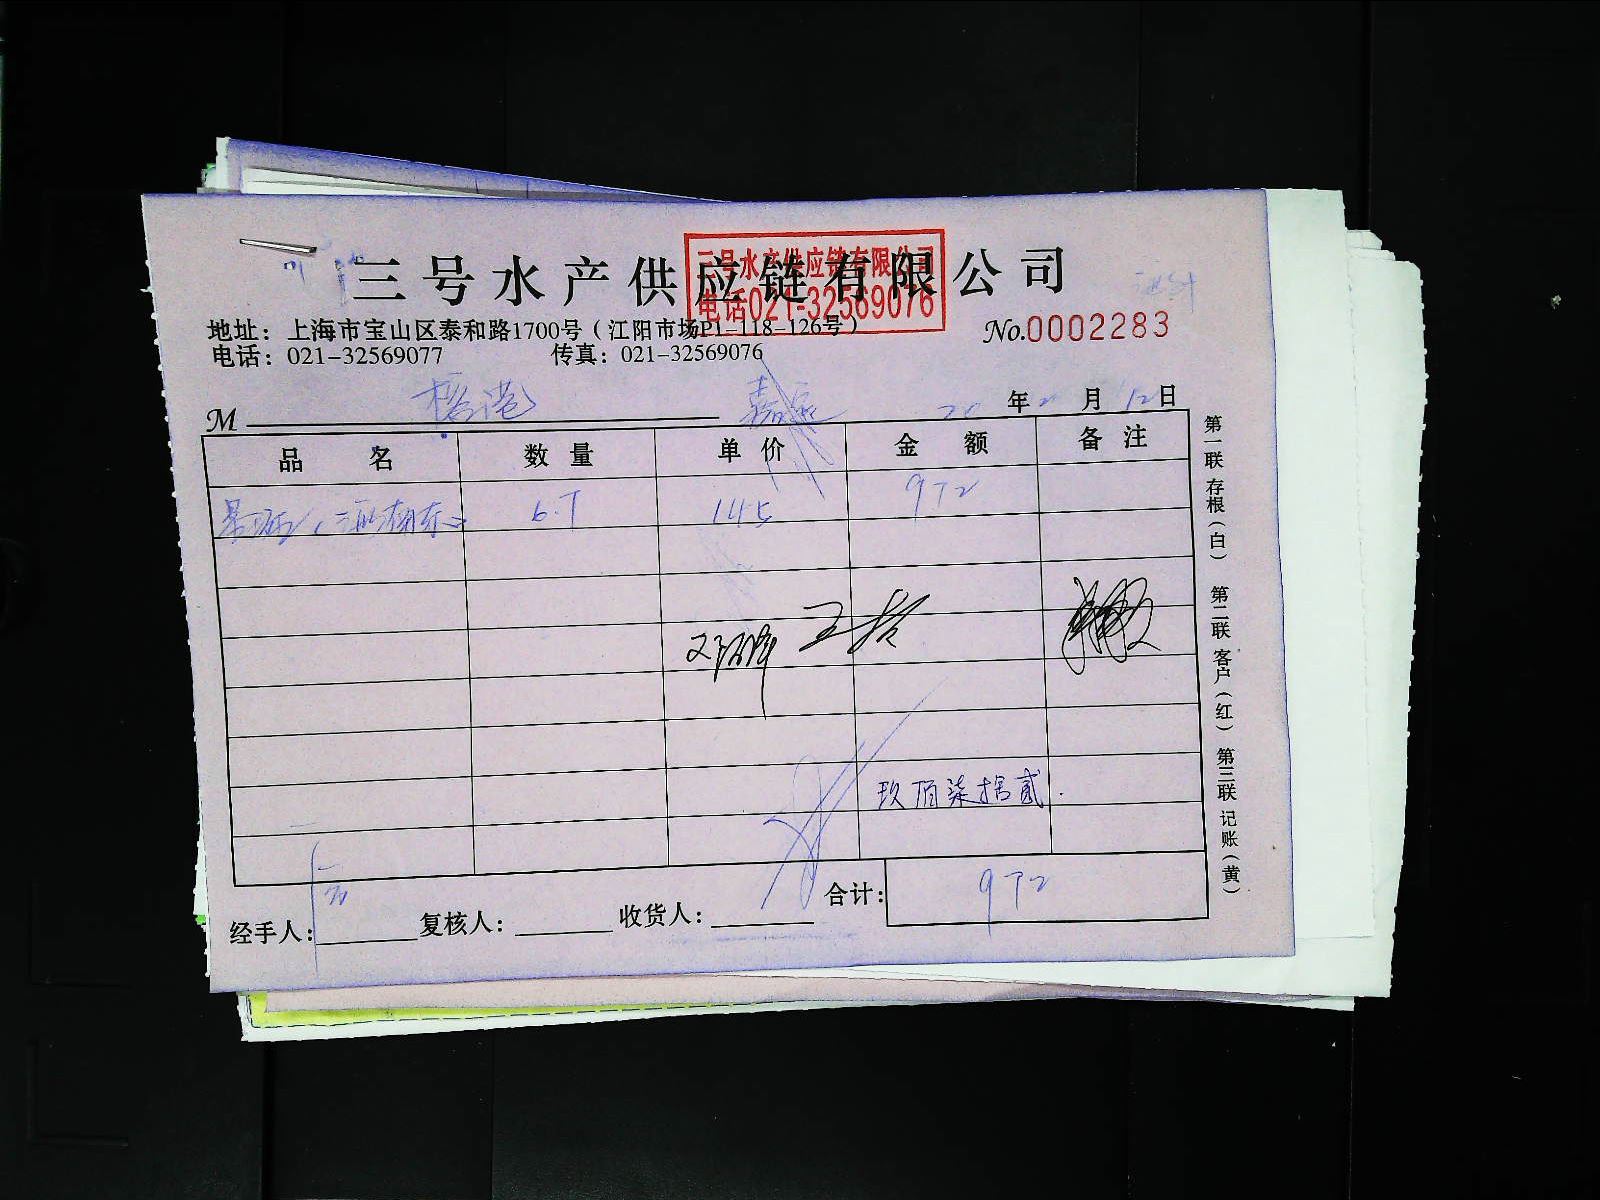 三号水产供应链有限公司
三号水产供应链有限公司
电话021-32569076
地址：上海市宝山区泰和路1700号（江阳市场P1-118-126号）
No.0002283
电话：021-32569077 传真：021-32569076
M 年 月 12日
品名 数量 单价 金额 备注
6.7 145 972
玖佰柒拾贰.
经手人: 复核人: 收货人: 合计: 972
第一联 存根（白） 第二联 客户（红） 第三联 记账（黄）